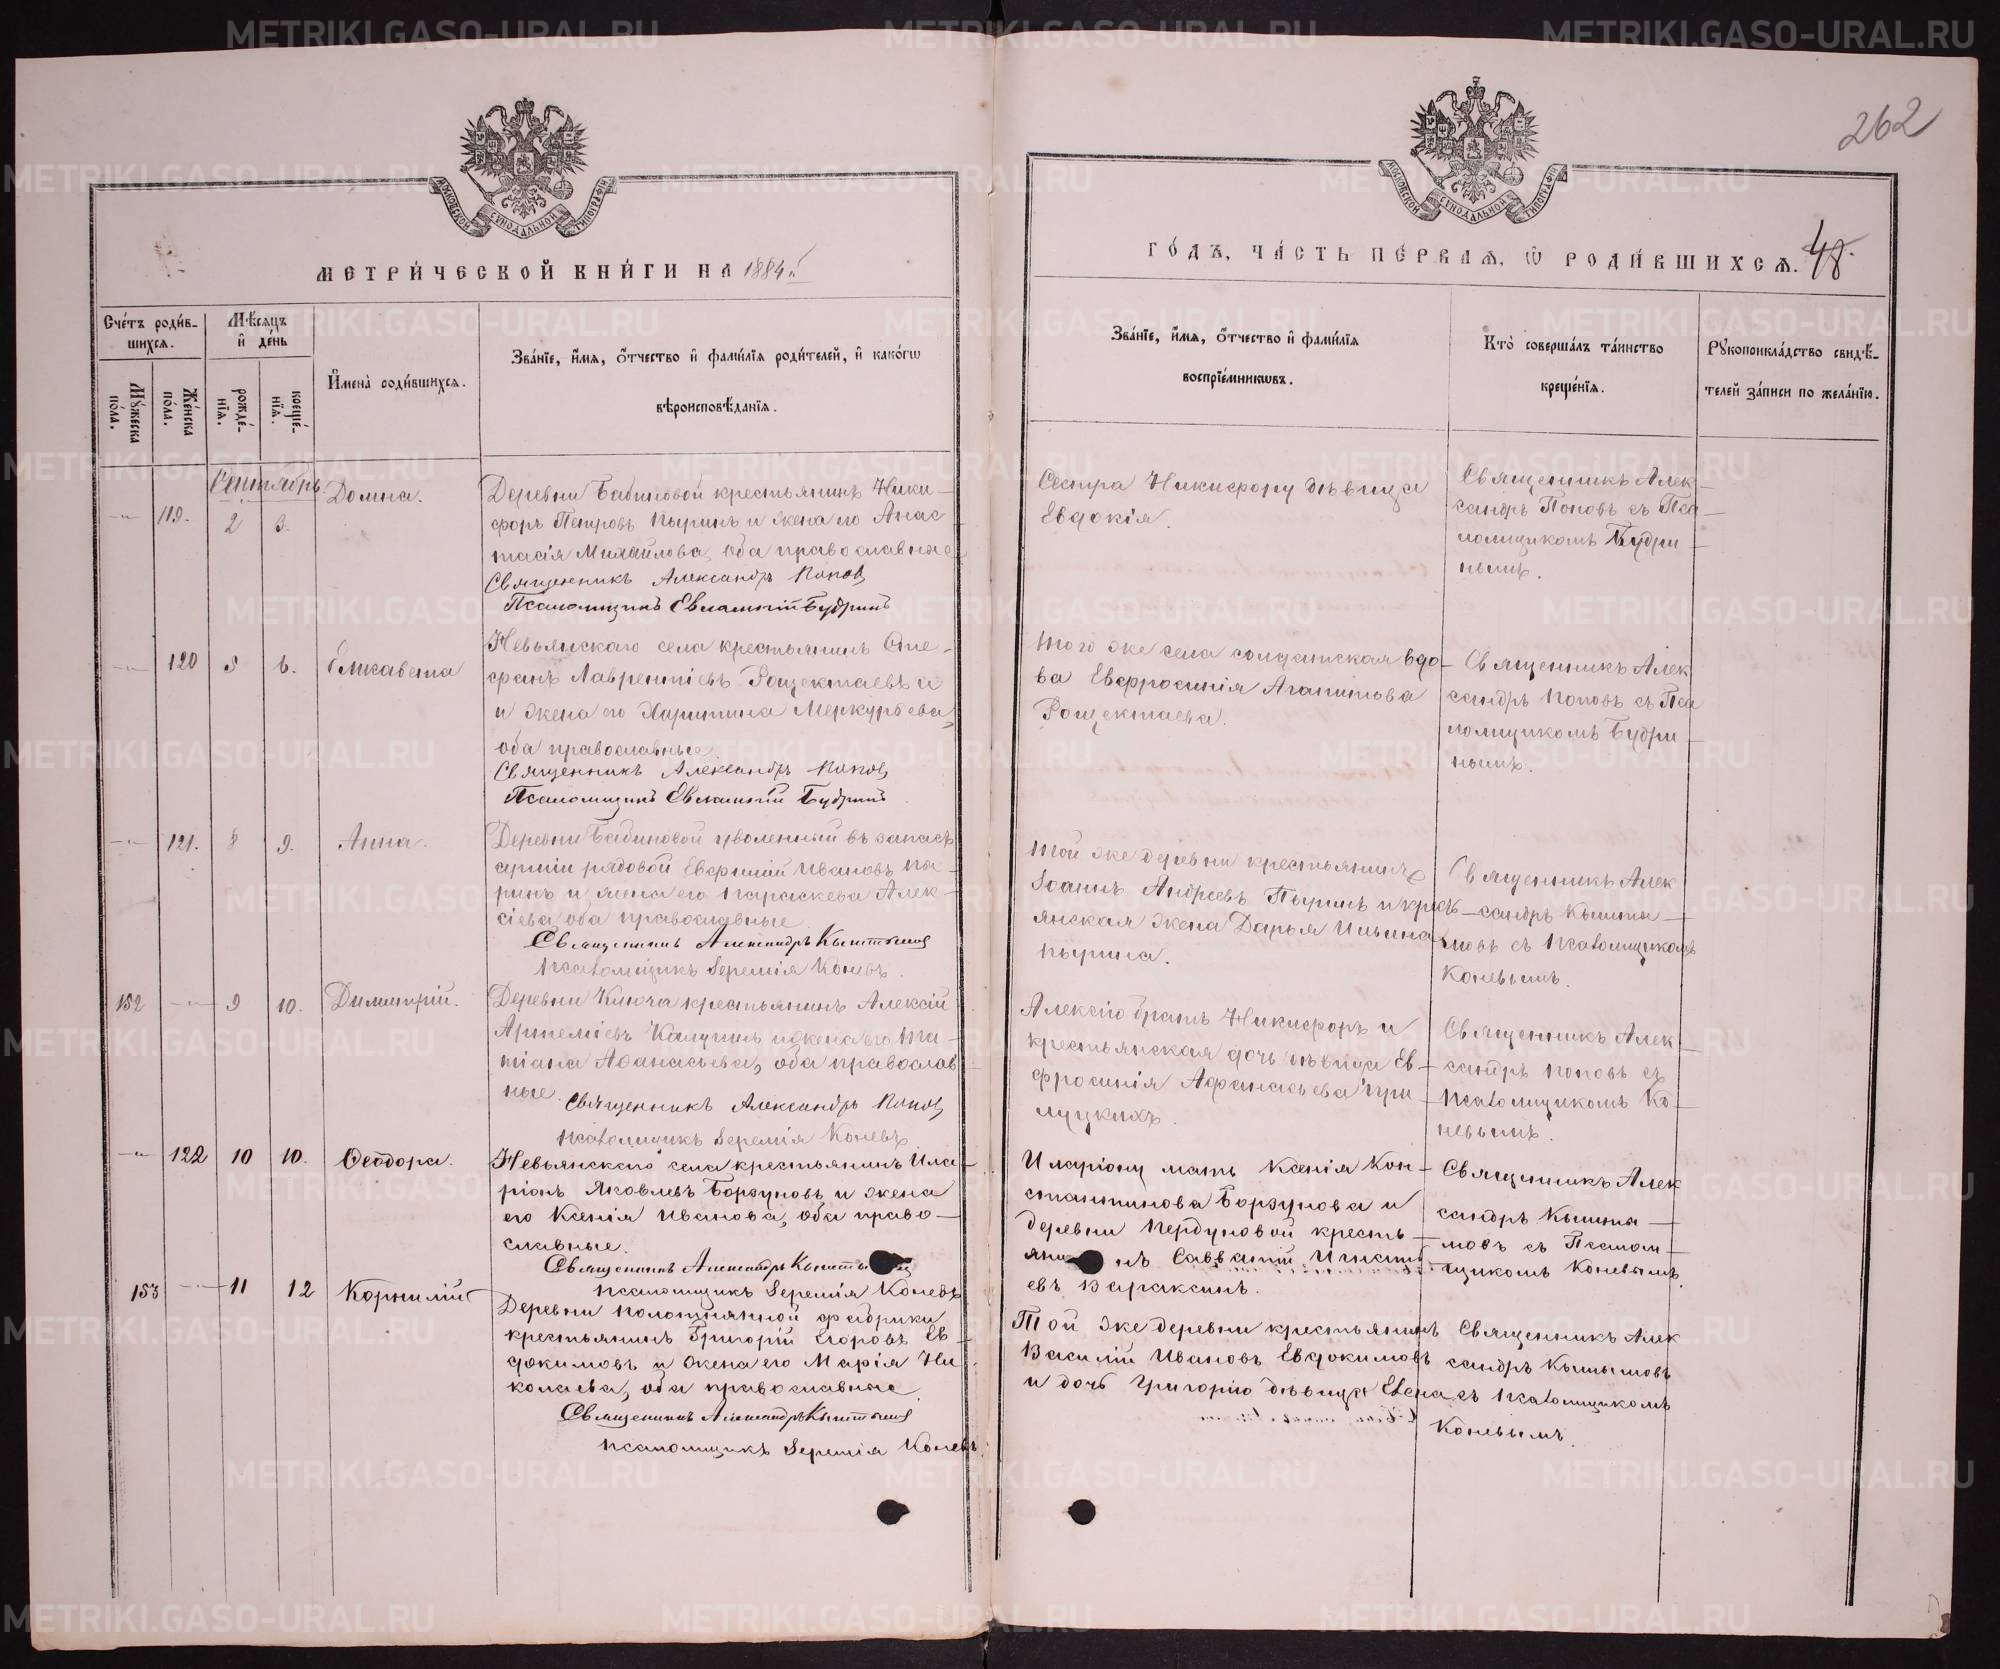 262
МОСКОВСКОЙ СѴНОДАЛЬНОЙ ТИПОГРАФІИ
МЕТРИ́ЧЕСКОЙ КНИ́ГИ НА 1884й
Сче́тъ роди́в-
шихсѧ.
Мѣ́сѧцъ
и҆ де́нь
Мꙋ́жеска
по́ла.
Же́нска
по́ла.
рожде́-
нїѧ.
креще́-
нїѧ.
И҆мена̀ роди́вшихсѧ.
Зва́нїе, и҆́мѧ, ѻ҆́тчество и҆ фами́лїѧ роди́телей, и҆ како́гѡ
вѣроисповѣ́данїѧ.
Сентябрь
—"— 119. 2 3. Домна.
Деревни Бабиновой крестьянинъ Ники-
форъ Петровъ Пыринъ и жена его Анас
тасія Михайлова, оба православные
Священникъ Александръ Поповъ
Псаломщикъ Евлампій Будринъ
—"— 120 5 6. Елисавета
Невьянскаго села крестьянинъ Сте-
фанъ Лаврентіевъ Рощектаевъ и
и жена его Харитина Меркурьева,
оба православные
Священникъ Александръ Поповъ
Псаломщикъ Евлампій Будринъ
—"— 121. 8 9. Анна.
Деревни Бабиновой уволенный въ запасъ
арміи рядовой Евфимій Ивановъ Пы-
ринъ и жена его Параскева Алек-
сіева, оба православные
Священникъ Александръ Кыштымовъ
Псаломщикъ Іеремія Коневъ.
152 —"— 9 10. Димитрій.
Деревни Ключа крестьянинъ Алексій
Артеміевъ Калугинъ и жена его Та-
тіана Афанасьева, оба православ
ные
Священникъ Александръ Поповъ
Псаломщикъ Іеремія Коневъ.
—"— 122 10 10. Ѳеодора.
Невьянскаго села крестьянинъ Ила-
ріонъ Яковлевъ Борзуновъ и жена
его Ксенія Иванова, оба право-
славные.
Священникъ Александръ Кышты
Псаломщикъ Іеремія Коневъ
153 —"— 11 12 Корнилій
Деревни Полотнянной фабрики
крестьянинъ Григорій Егоровъ Ев-
докимовъ и жена его Марія Ни-
колаева, оба православные.
Священникъ Александръ Кыштымовъ
Псаломщикъ Іеремія Коневъ.
МОСКОВСКОЙ СѴНОДАЛЬНОЙ ТИПОГРАФІИ
ГО́ДЪ, ЧА́СТЬ ПЕ́РВАѦ, Ѡ҆ РОДИ́ВШИХСѦ. 48.
Зва́нїе, и҆́мѧ, ѻ҆́тчество и҆ фами́лїѧ
воспрїе́мникѡвъ.
Кто̀ соверша́лъ та́инство
креще́нїѧ.
Рꙋкоприкла́дство свидѣ́-
телей за́писи по жела́нїю.
Сестра Никифору дѣвица
Евдокія.
Священникъ Алек-
сандръ Поповъ съ Пса-
ломщикомъ Будри-
нымъ.
Того же села солдатская вдо-
ва Евфросинія Агапитова
Рощектаева.
Священникъ Алек
сандръ Поповъ съ Пса
ломщикомъ Будри-
нымъ.
Той же деревни крестьянинъ
Іоаннъ Андреевъ Пыринъ и крест-
янская жена Дарья Ильина
Пырина.
Священникъ Алек
сандръ Кышты-
мовъ съ Псаломщикомъ
Коневымъ.
Алексію братъ Никифоръ и
крестьянская дочь дѣвица Ев-
фросинія Афанасьева При-
луцкихъ.
Священникъ Алек-
сандръ Поповъ съ
Псаломщикомъ Ко-
невымъ.
Иларіону мать Ксенія Кон-
стантинова Борзунова и
деревни Пердуновой кресть-
яни нъ Савватій Игнаті
евъ Вараксинъ.
Священникъ Алек
сандръ Кышты-
мовъ съ Псалом-
щикомъ Коневымъ.
Той же деревни крестьянинъ
Василій Ивановъ Евдокимовъ
и дочь Григорію дѣвица Елена
Священникъ Алек
сандръ Кыштымовъ
съ Псаломщикомъ
Коневымъ.
METRIKI.GASO-URAL.RU